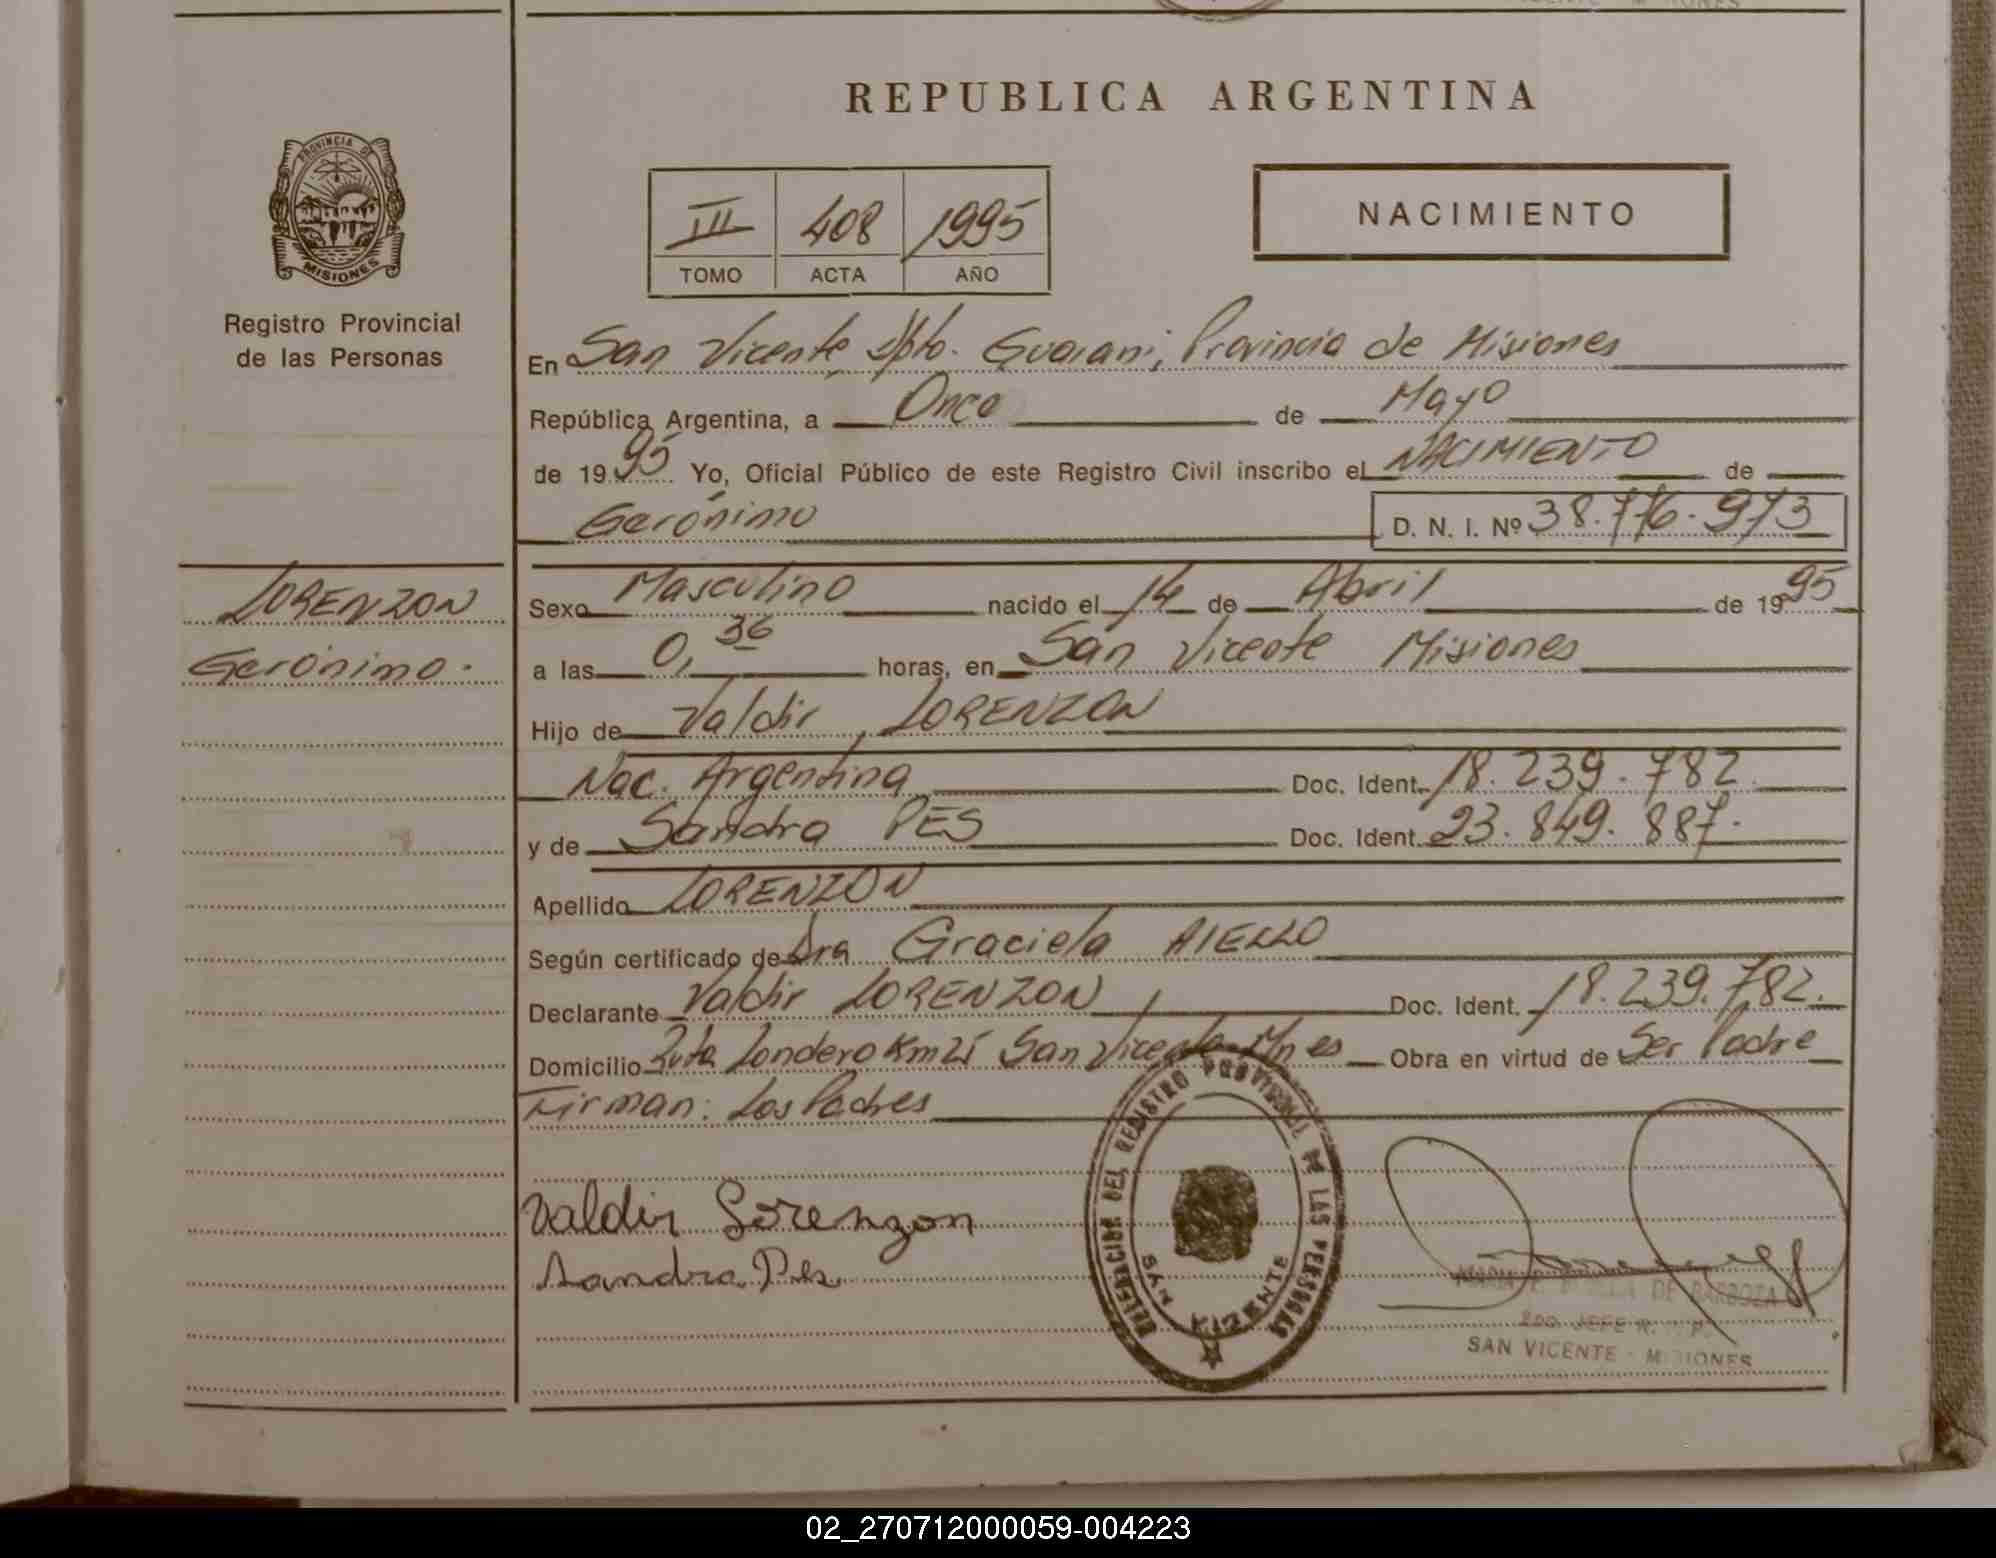 REPUBLICA ARGENTINA
PROVINCIA DE
MISIONES
Registro Provincial
de las Personas
III 408 1995
TOMO ACTA AÑO
NACIMIENTO
En San Vicente, Dpto. Guarani, Provincia de Misiones
República Argentina, a Once de Mayo
de 1995 Yo, Oficial Público de este Registro Civil inscribo el NACIMIENTO de
Gerónimo D. N. I. Nº 38.776.973
LORENZON
Gerónimo.
Sexo Masculino nacido el 14 de Abril de 1995
a las 0,36 horas, en San Vicente Misiones
Hijo de Valdir, LORENZON
Nac. Argentina Doc. Ident. 18.239.782.
y de Sandra PES Doc. Ident. 23.849.887.
Apellido LORENZON
Según certificado de Dra Graciela AIELLO
Declarante Valdir LORENZON, Doc. Ident. 18.239.782.
Domicilio Ruta Londero Km 21 San Vicente Mnes Obra en virtud de Ser Padre
Firman: Los Padres
Valdir Lorenzon
Sandra Pes
DELEGACION DEL REGISTRO PROVINCIAL DE LAS PERSONAS
SAN VICENTE
DE BARBOZA
2DO. JEFE R. P.
SAN VICENTE - MISIONES
02_270712000059-004223